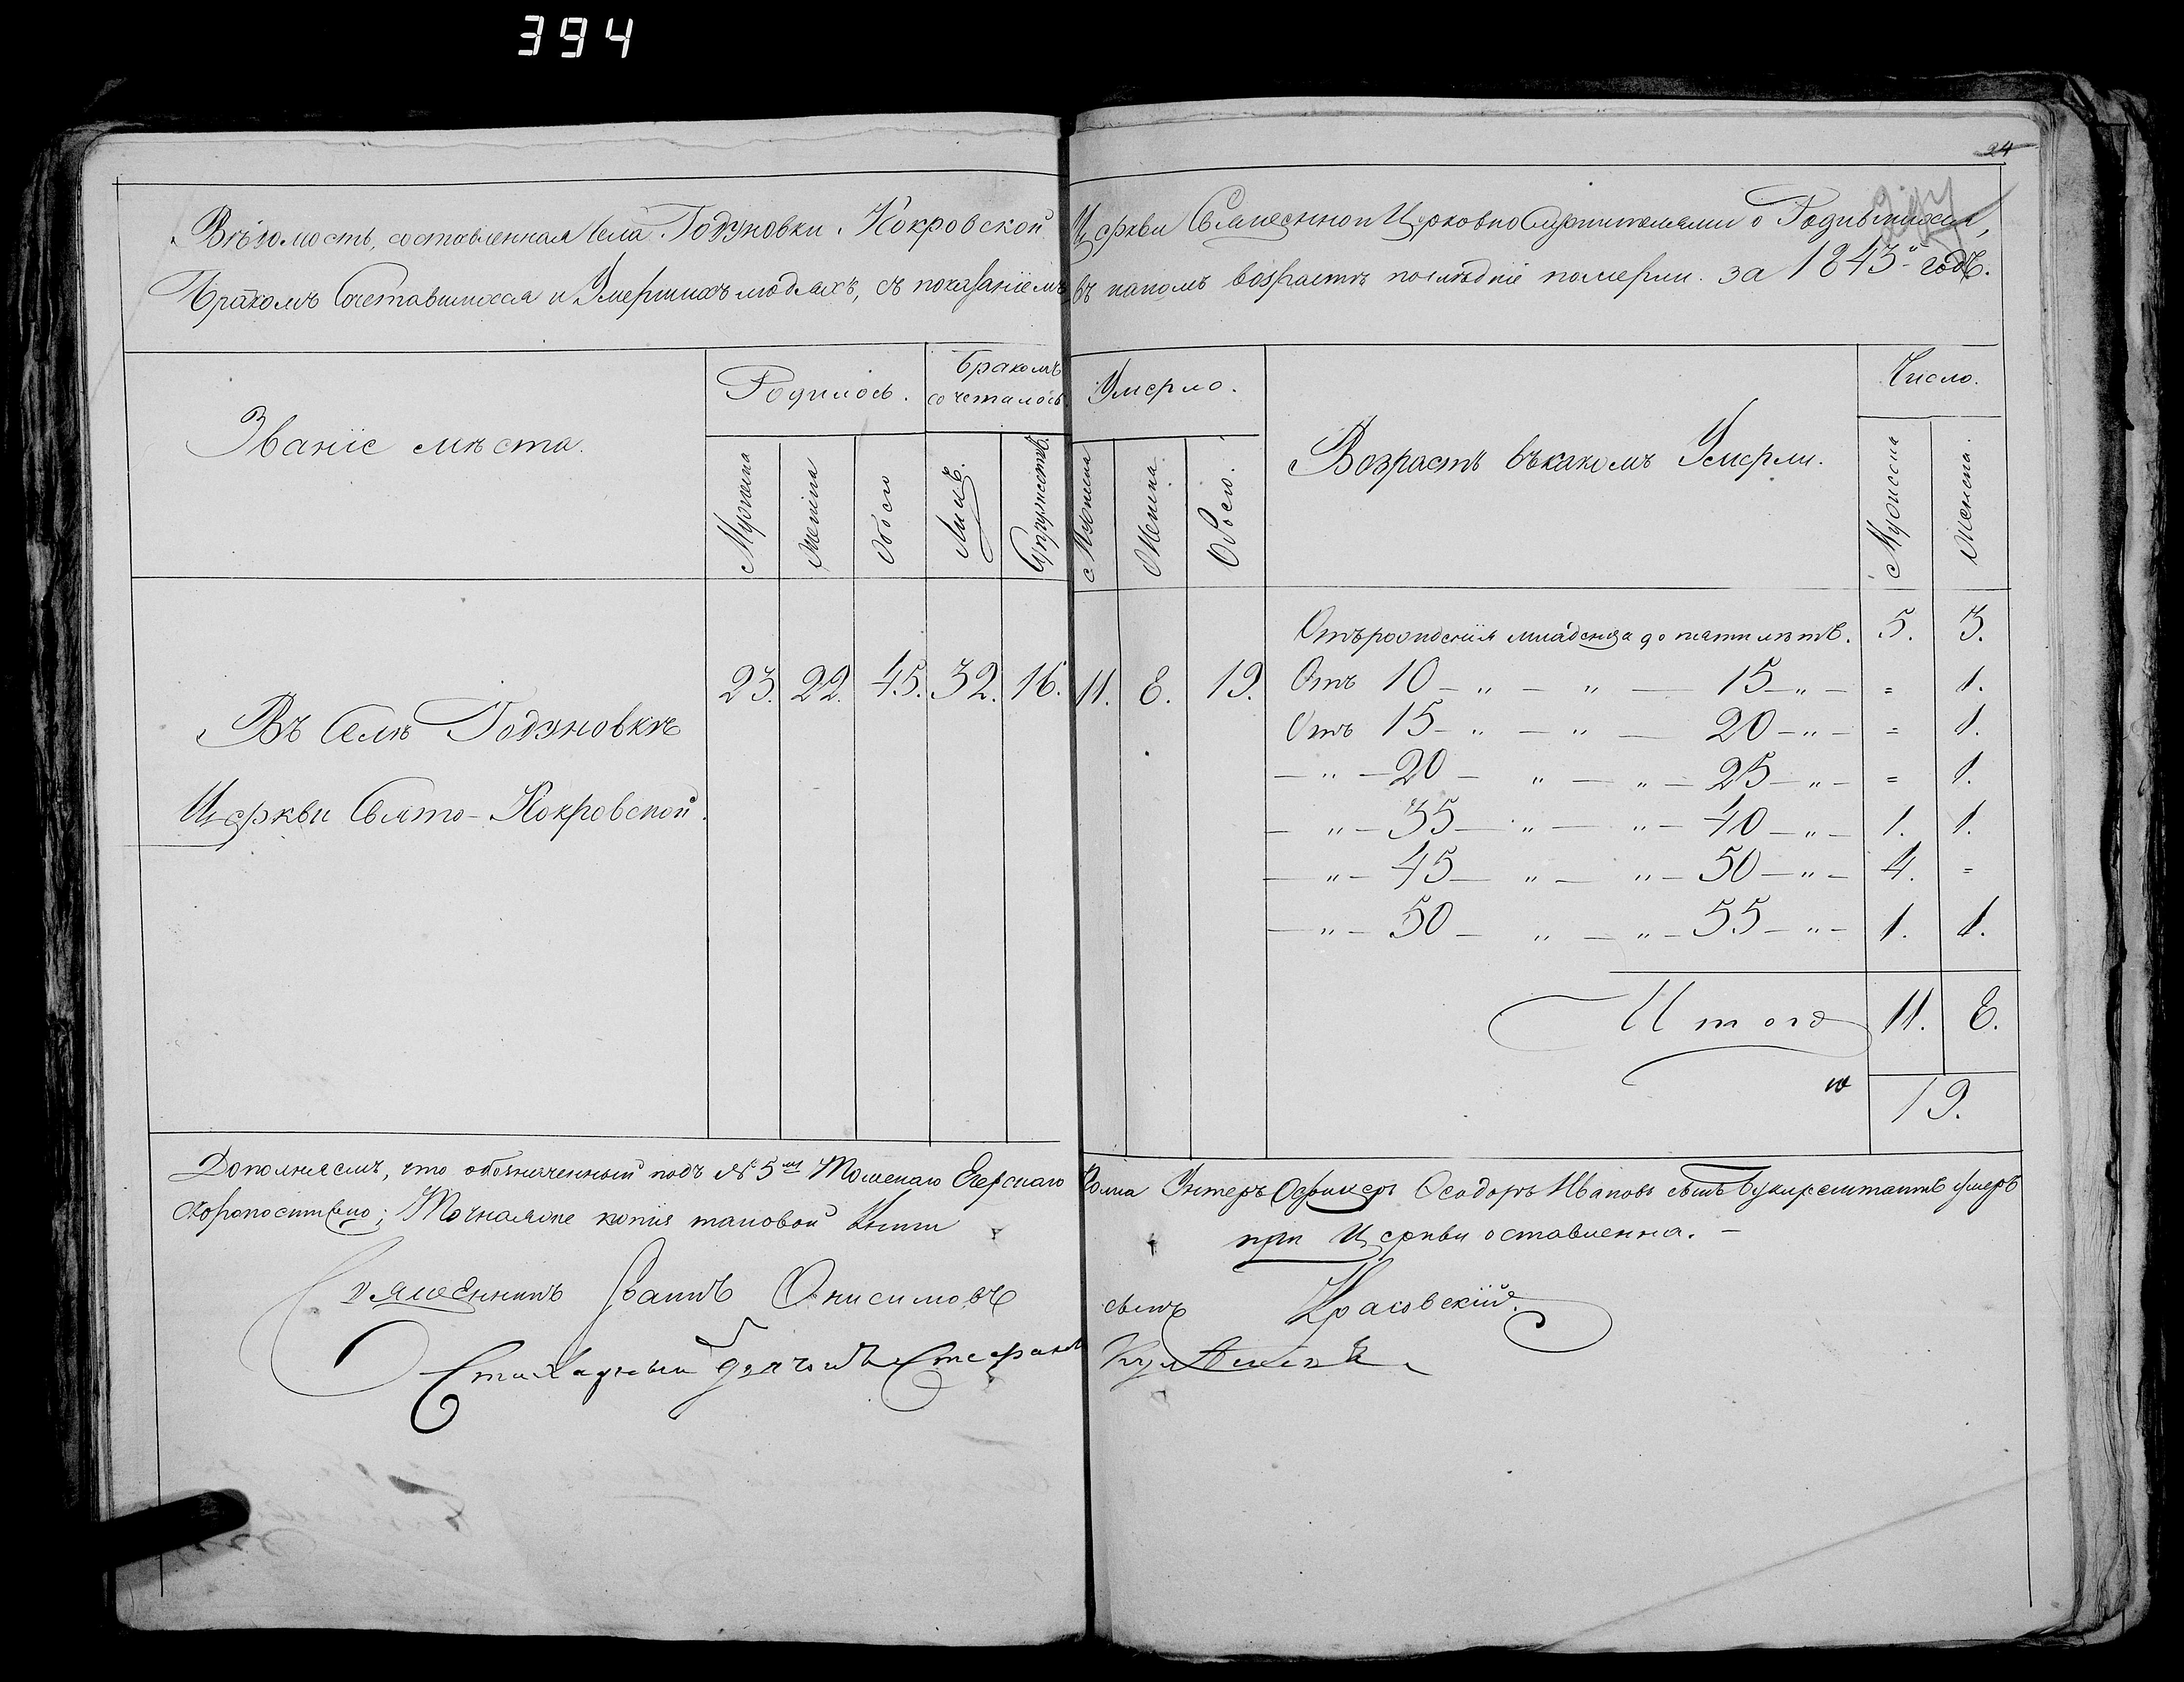 394
24
Вѣдомость, составленная села Годуновки, Покровской Церкви Священно и Церковно Служителями о Родившихся,
Бракомъ Сочетавшихся и Умершихъ людяхъ, съ показаніемъ въ какомъ возрастѣ послѣдніе померли. за 1843й годъ.
Званіе мѣста.
Родилось.
Бракомъ сочеталось.
Умерло.
Возрастъ въ какомъ Умерли.
Число.
Мужеска Женска Обоего Лицъ. Супружествъ. Мужеска Женска Обоего. Мужеска Женска.
Отъ рожденія младенца до пяти лѣтъ. 5. 3.
23. 22. 45. 32. 16. 11. 8. 19. Отъ 10 — „ — „ — 15 — „ — = 1.
Въ Селѣ Годуновкѣ
Отъ 15 — „ — „ — 20 — „ — = 1.
— „ — 20 — „ — „ — 25 — „ — = 1.
Церкви Свято-Покровской.
— „ — 35 — „ — „ — 40 — „ — 1. 1.
— „ — 45 — „ — „ — 50 — „ — 4. =
— „ — 50 — „ — „ — 55 — „ — 1. 1.
Итого 11. 8.
19.
Дополняемъ, что обозначенный подъ № 5мъ Егерскаго Полка Унтеръ Офицеръ Феодоръ Ивановъ сынъ умеръ
скоропостижно; Точная же копія таковой Книги при Церкви оставленна. —
Священникъ Іоаннъ Онисимовъ сынъ Красовскій.
Стихарный дьячокъ Стефанъ